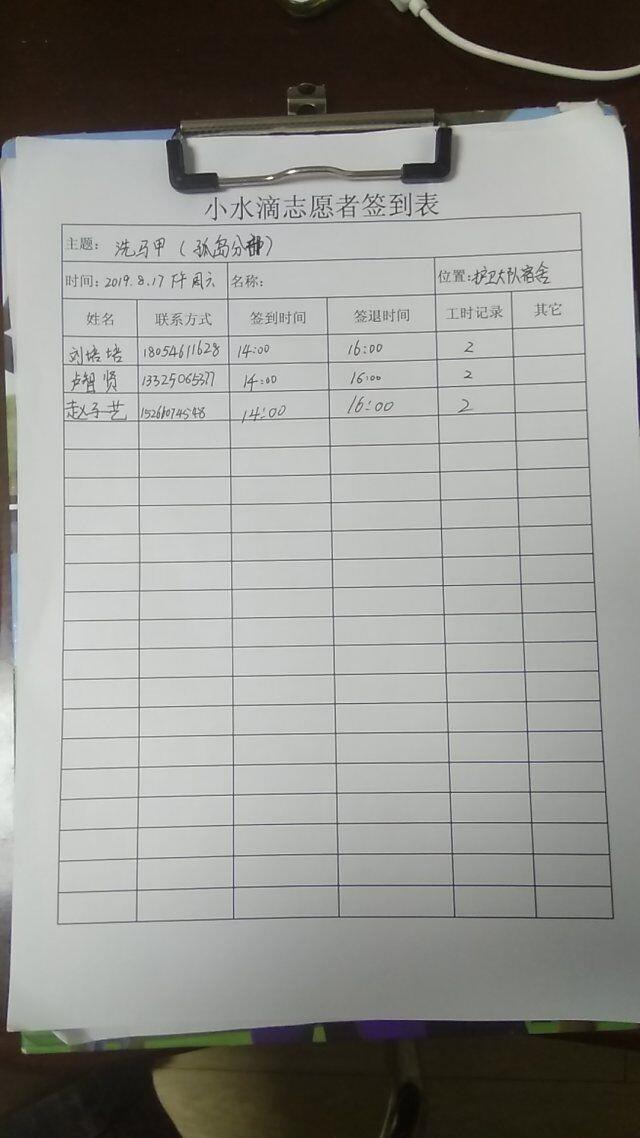 小水滴志愿者签到表
主题: 洗马甲（孤岛分部）
时间: 2019.8.17 下午 周六 名称: 位置: 护卫大队宿舍
姓名 联系方式 签到时间 签退时间 工时记录 其它
刘培培 18054611628 14:00 16:00 2
卢智贤 13325065377 14:00 16:00 2
赵子艺 15261074548 14:00 16:00 2